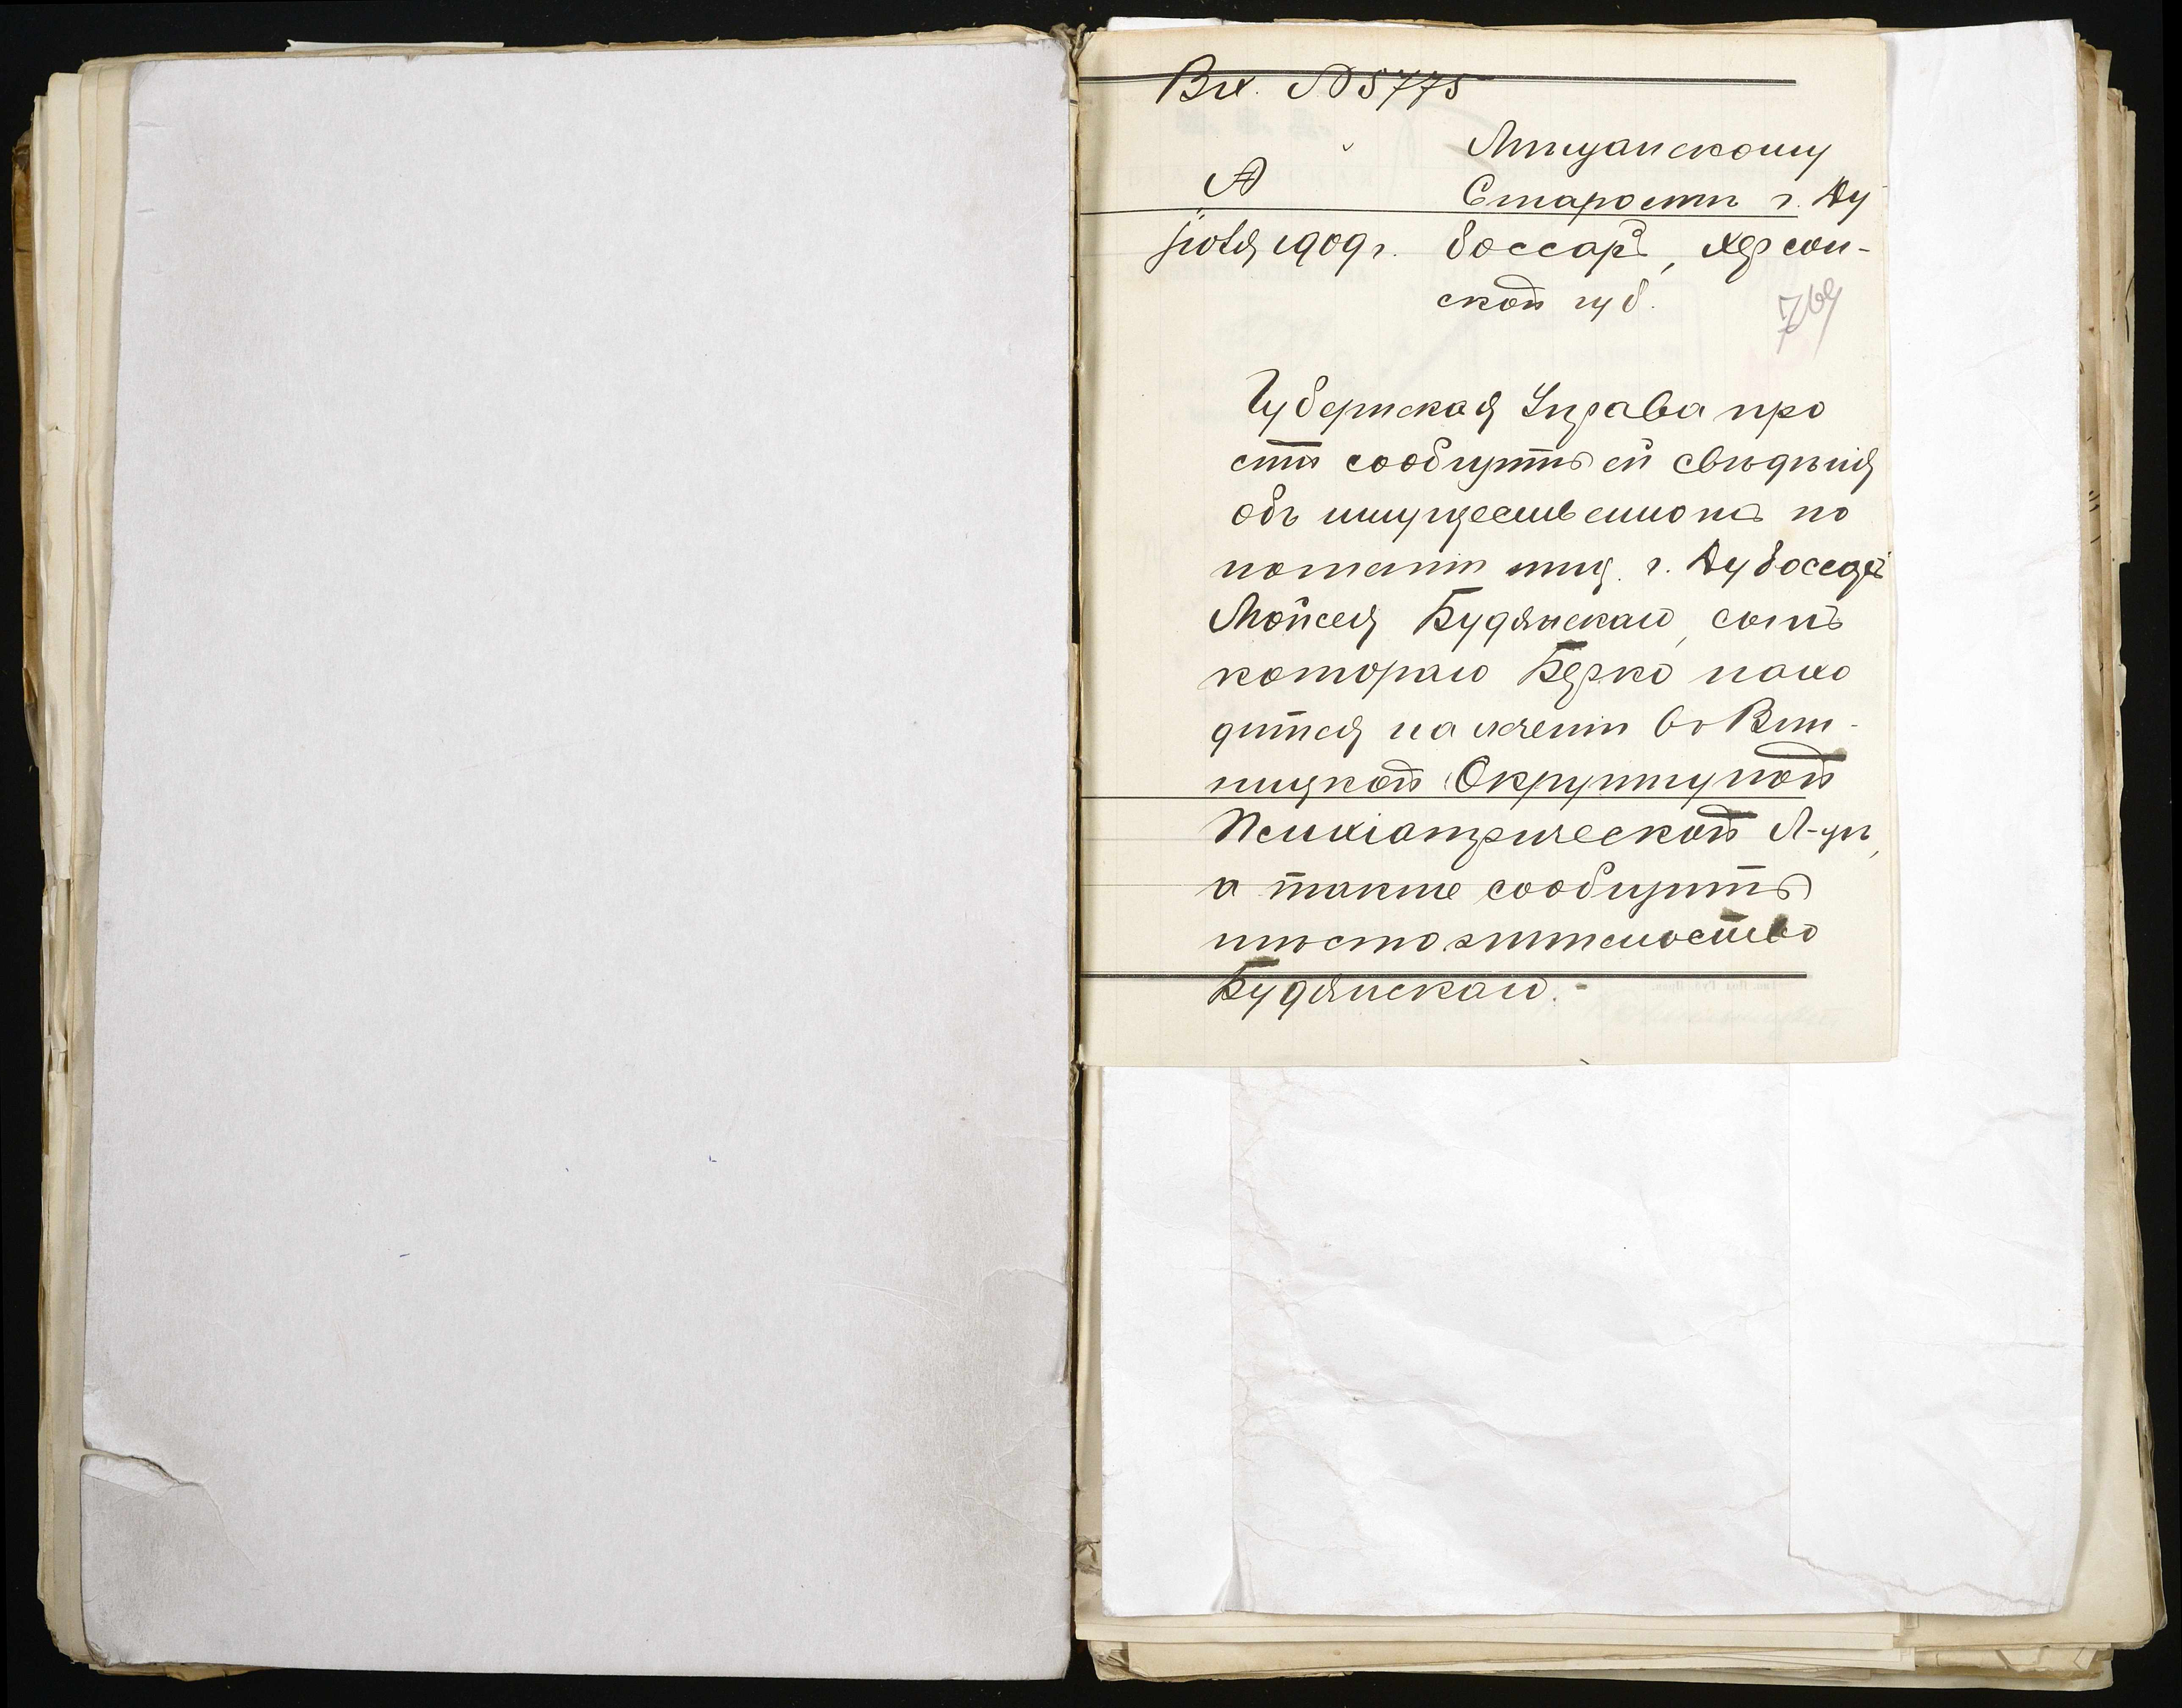 Вх. № 5775
Мѣщанскому
№
Старостѣ г. Ду
іюля 1909 г.
боссаръ, Херсон-
ской губ.
769
Губернская Управа про
ситъ сообщить ей свѣдѣнія
объ имущественномъ по
ложеніи мѣщ. г. Дубоссаръ
Мойсея Будянскаго, сынъ
котораго Берко нахо
дится на леченіи въ Вин-
ницкой Окружной
Психіатрической Л-цѣ,
а также сообщить
мѣсто жительство
Будянскаго.-